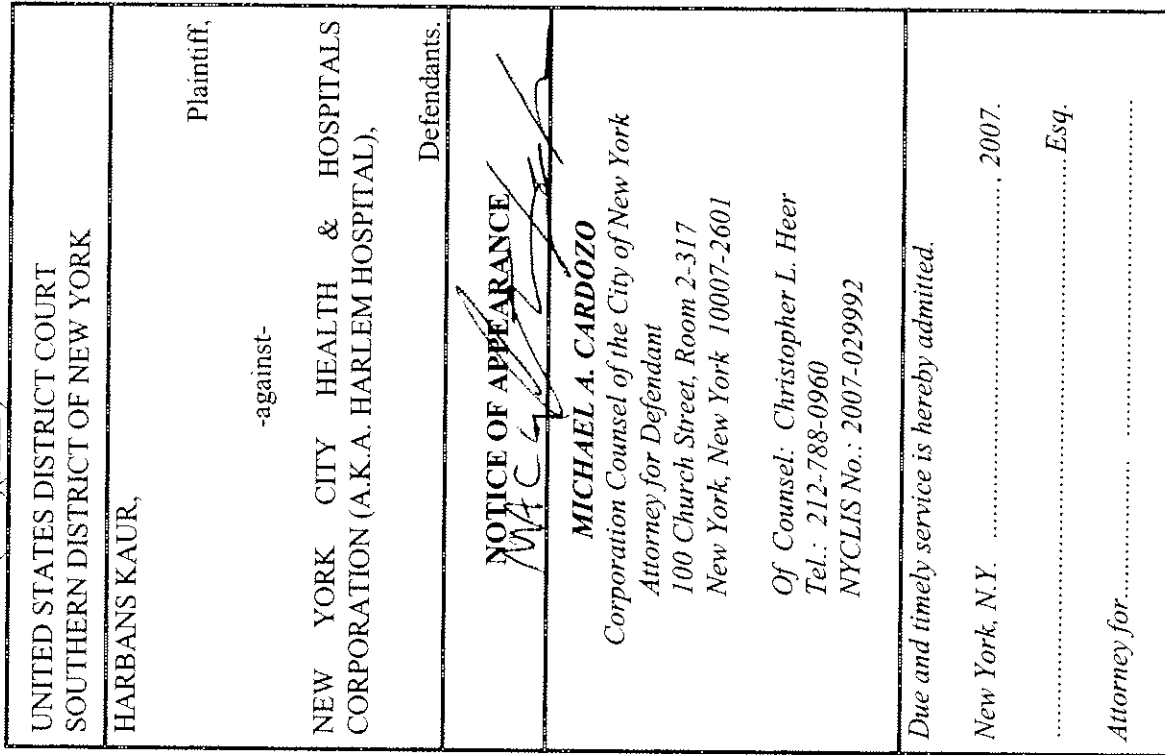 UNITED STATES DISTRICT COURT
SOUTHERN DISTRICT OF NEW YORK
HARBANS KAUR,
Plaintiff,
-against-
NEW YORK CITY HEALTH & HOSPITALS
CORPORATION (A.K.A. HARLEM HOSPITAL),
Defendants.
NOTICE OF APPEARANCE
MICHAEL A. CARDOZO
Corporation Counsel of the City of New York
Attorney for Defendant
100 Church Street, Room 2-317
New York, New York 10007-2601
Of Counsel: Christopher L. Heer
Tel.: 212-788-0960
NYCLIS No.: 2007-029992
Due and timely service is hereby admitted.
New York, N.Y. ..............................................., 2007.
.......................................................................Esq.
Attorney for.................. ...............................................